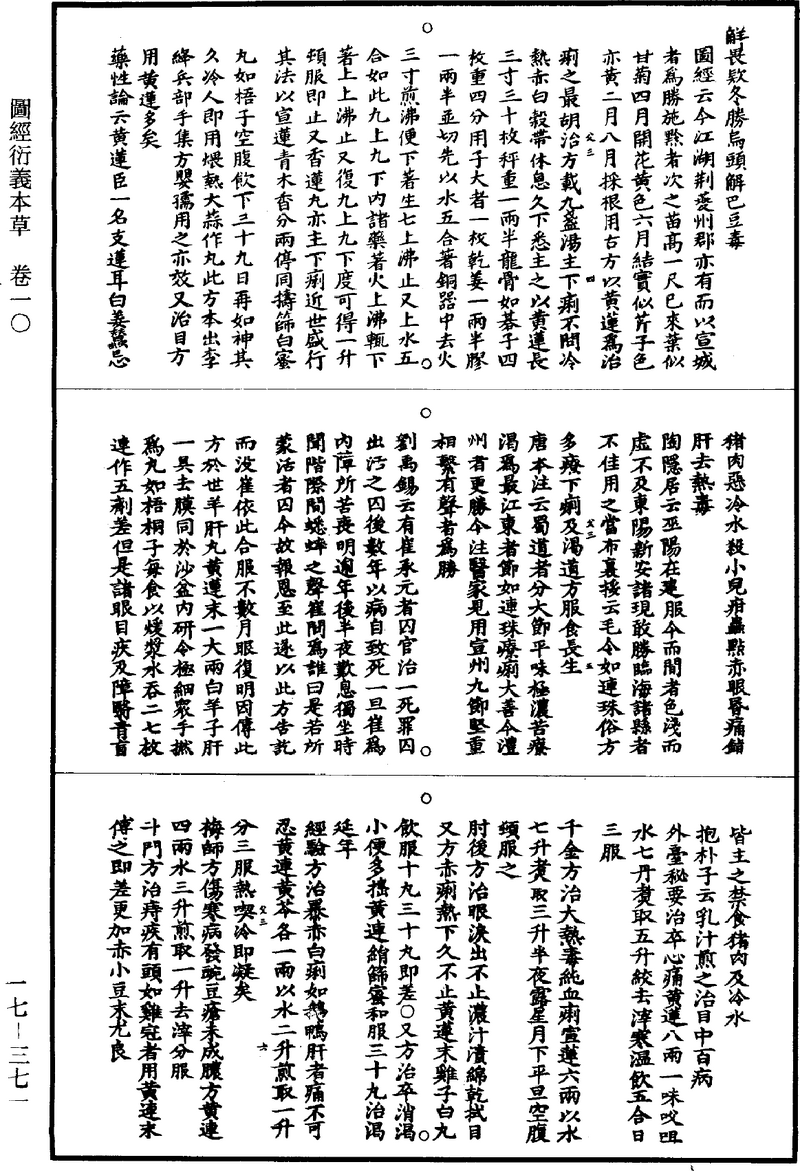 圖經衍義本草　卷一〇
一七—三七一
解畏欵冬勝烏頭解巴豆毒
圖經云今江湖荆夔州郡亦有而以宣城
者爲勝施黔者次之苗高一尺已來葉似
甘菊四月開花黄色六月結實似芹子色
亦黄二月八月採根用古方以黄蓮爲治
痢之最胡洽方載九盞湯主下痢不問冷
熱赤白穀帶休息久下悉主之以黄蓮長
三寸三十枚秤重一兩半龍骨如碁子四
枚重四分用子大者一枚乾姜一兩半膠
一兩半並切先以水五合著銅器中去火
三寸煎沸便下著生土上沸止又上水五
合如此九上九下内諸藥著火上沸輒下
著土上沸止又復九上九下度可得一升
頓服即止又香蓮丸亦主下痢近世盛行
其法以宣蓮青木香分兩停同擣篩白蜜
丸如梧子空腹飲下三十九日再如神其
久冷人即用煨熟大蒜作丸此方本出李
絳兵部手集方嬰孺用之亦效又治目方
用黄蓮多矣
藥性論云黄蓮臣一名支蓮耳白姜蠶忌
猪肉惡冷水殺小兒疳蟲點赤眼昏痛鎮
肝去熱毒
陶隱居云巫陽在建服今西間者色淺而
虛不及東陽新安諸現敢勝臨海諸縣者
不佳用之當布裹挼云毛令如連珠俗方
多療下痢及渴道方服食長生
唐本注云蜀道者分大節平味極濃苦療
渴爲最江東者節如連珠療痢大善今澧
州者更勝今注醫家見用宣州九節堅重
相繫有聲者爲勝
劉禹錫云有崔承元者囚官治一死罪囚
出活之囚後數年以病自致死一旦崔爲
内障所苦喪明逾年後半夜歎息獨坐時
聞階際間蟋蟀之聲崔問爲誰曰是若所
蒙活者囚今故報恩至此遂以此方告訖
而没崔依此合服不數月眼復明因傳此
方於世羊肝丸黄蓮末一大兩白羊子肝
一具去膜同於沙盆内研令極細衆手撚
爲丸如梧桐子每食以煖漿水吞二七枚
連作五劑差但是諸眼目疾及障翳青盲
皆主之禁食猪肉及冷水
抱朴子云乳汁煎之治目中百病
外臺秘要治卒心痛黄蓮八兩一味㕮咀
水七升煑取五升絞去滓寒温飲五合日
三服
千金方治大熱毒純血痢宣蓮六兩以水
七升煑取三升半夜露星月下平旦空腹
頓服之
肘後方治眼淚出不止濃汁漬綿乾拭目
又方赤痢熱下久不止黄蓮末雞子白丸
飲服十丸三十丸即差○又方治卒消渴
小便多擣黄連絹篩蜜和服三十丸治渴
延年
經驗方治暴赤白痢如鵝鴨肝者痛不可
忍黄連黄芩各一兩以水二升煎取一升
分三服熱喫冷即凝矣
梅師方傷寒病發豌豆瘡未成膿方黄連
四兩水三升煎取一升去滓分服
斗門方治痔疾有頭如雞冠者用黄連末
傅之即差更加赤小豆末尤良